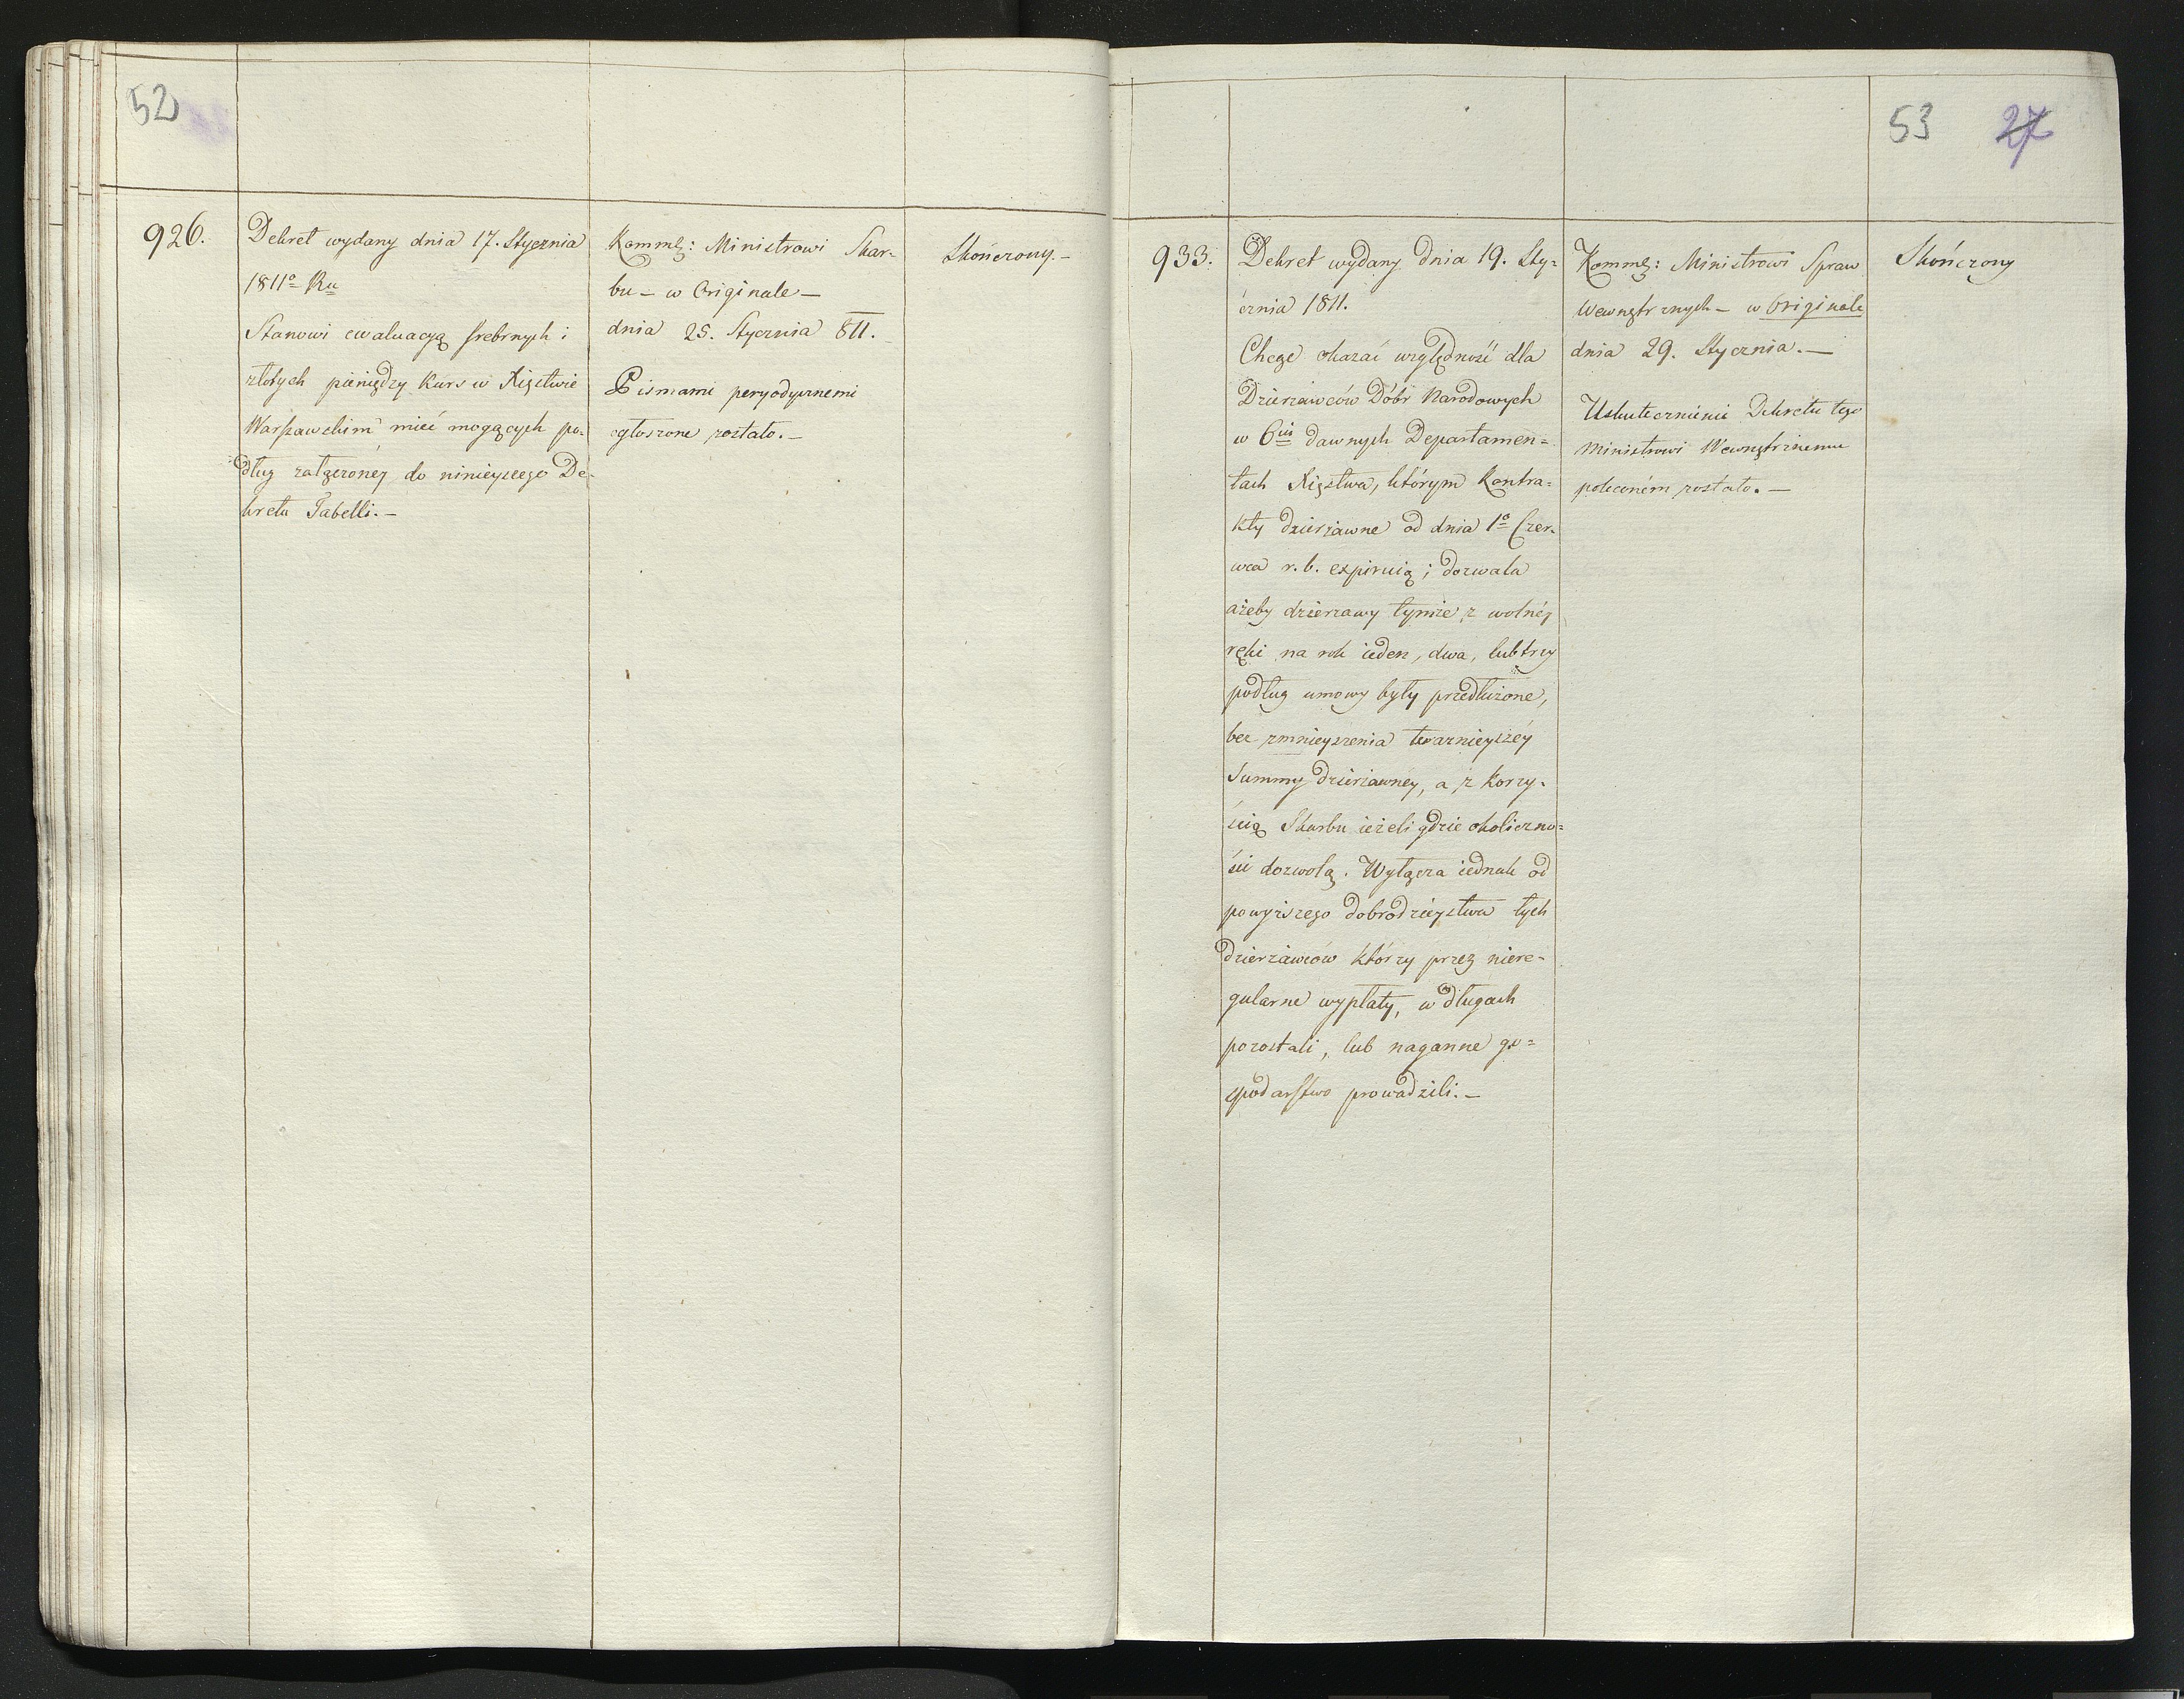 52
926.
Dekret wydany dnia 17. Stycznia
1811o Ru
Stanowi ewaluacyą srebrnych i
złotych pieniędzy kurs w Xięstwie
Warszawskim mieć mogących po-
dług załączoney do ninieyszego De-
kretu Tabelli.—
Kommk: Ministrowi Skar-
bu — w Originale —
dnia 25. Stycznia 811.
Pismami peryodycznemi
ogłoszone zostało.—
Skończony.—
53 27
933.
Dekret wydany dnia 19. Sty-
cznia 1811.
Chcąc okazać względność dla
Dzierzawców Dóbr Narodowych
w 6iu dawnych Departamen=
tach Xięstwa, którym Kontra=
kty dzierżawne od dnia 1o Czer-
wca r. b. expiruią; dozwala
ażeby dzierzawy tymże z wolnéy
ręki na rok ieden, dwa, lub trzy
podług umowy były przedłużone,
bez zmnieyszenia teraznieyszéy
Summy dzierżawney, a z korzy-
ścią Skarbu ieżeli gdzie okoliczno=
ści dozwolą. Wyłącza iednak od
powyższego dobrodzieystwa tych
dzierzawców którzy przez niere-
gularne wypłaty, w długach
pozostali, lub naganne go=
spodarstwo prowadzili.—
Kommk: Ministrowi Spraw
Wewnętrznych — w Originale
dnia 29. Stycznia.—
Uskutecznienie Dekretu tego
Ministrowi Wewnętrznemu
poleconém zostało.—
Skończony